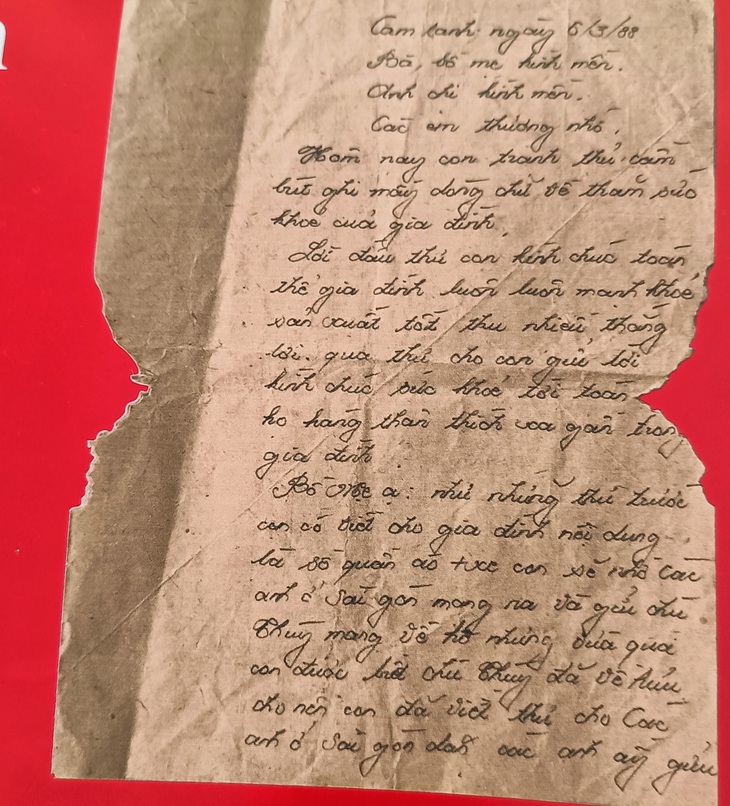 Cam ranh ngày 6/3/88
Bà, bố mẹ kính mến.
Anh chị kính mến.
Các em thương nhớ.
Hôm nay con tranh thủ cầm
bút ghi mấy dòng chữ về thăm sức
khoẻ của gia đình.
Lời đầu thư con kính chúc toàn
thể gia đình luôn luôn mạnh khoẻ
sản xuất tốt thu nhiều thắng
lợi. qua thư cho con gửi lời
kính chúc sức khoẻ tới toàn
họ hàng thân thích xa gần trong
gia đình
Bố Mẹ ạ: như những thư trước
con có viết cho gia đình nội dung
là số quần áo + xe con sẽ nhờ các
anh ở Sài gòn mang ra và gửi chú
Thuý mang về hộ nhưng vừa qua
con được biết chú Thuý đã về hưu
cho nên con đã viết thư cho Các
anh ở Sài gòn dặn các anh ấy gửi